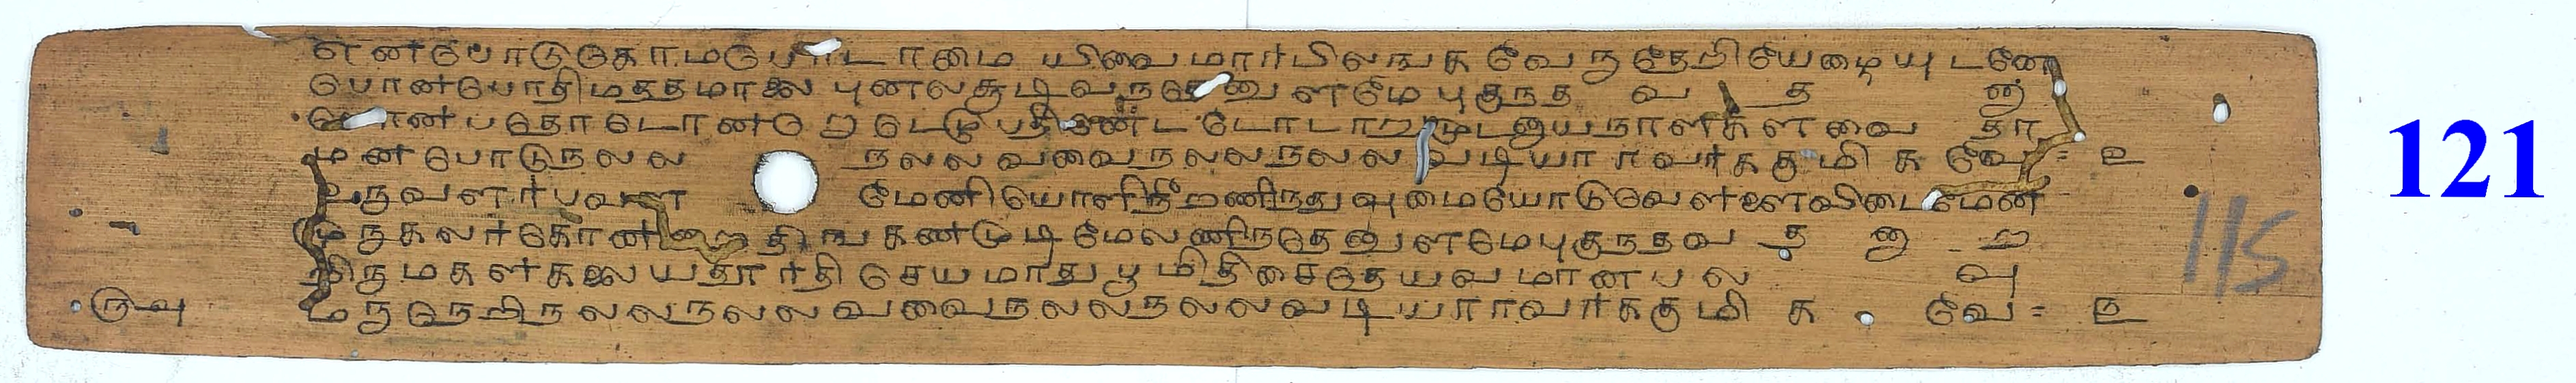 என்பொடுகொம்பொடாமை யிவைமார்பிலங்க வேருதேறியேழையுடனே
பொன்பொதிமத்தமாலை புனல்சூடிவந்தெனுளமே புகுந்த வ த னா
லொன்பதொடொன்றொடேழு பதினெண்டொடாறுமுடனாயநாள்களவை தா
மன்பொடுநல்ல நல்லவவைநல்லநல்ல வடியாரவர்க்குமிக வே = உ
உருவளர்பவள மேனியொளிநீறணிந்துவுமையோடுவெள்ளைவிடைமேன்
முருகலர்கொன்றை திங்கண்முடிமேலணிந்தெனுளமேபுகுந்தவ த னா ற்
றிருமகள்கலையதூர்தி செயமாதுபூமிதிசைதெய்வமானபல வு
மருநெறிநல்லநல்லவவைநல்லநல்லவடியாரவர்க்குமி க வே = ௩
ருவு
115
121